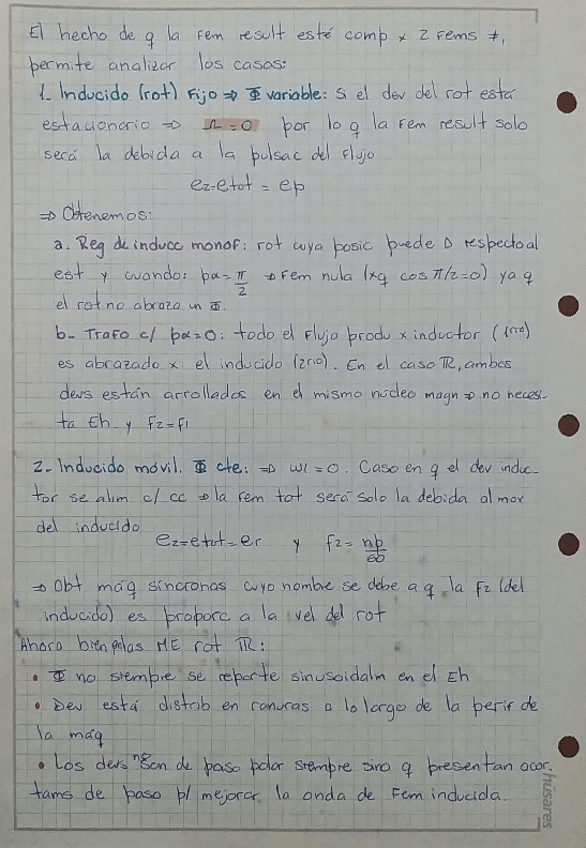 El hecho de q la Fem result esté comp x 2 Fems ≠,
permite analizar los casos:
1- Inducido (rot) Fijo ⇒ Φ variable: Si el dev del rot está
estacionario ⇒ Ω=0 por lo q la Fem result solo
será la debida a la pulsac del Flujo
e2=etot = ep
⇒ Obtenemos:
a. Reg de inducc monof: rot cuya posic puede Δ respecto al
est y cuando: pα = π/2 → Fem nula (xq cos π/2=0) ya q
el rot no abraza un Φ.
b- Trafo c/ pα=0: todo el Flujo produ x inductor (1rio)
es abrazado x el inducido (2rio). En el caso IR, ambos
devs están arrollados en el mismo nucleo magn ⇒ no necesi-
ta Eh y F2=F1
2- Inducido móvil. Φ cte: ⇒ w1=0. Caso en q el dev induc-
tor se alim c/ cc ⇒ la Fem tot será solo la debida al mov
del inducido
e2=etot=er y F2= np/60
⇒ Obt máq síncronas cuyo nombre se debe a q la F2 (del
inducido) es proporc a la vel del rot
Ahora bien p/ las ME rot IR:
• Φ no siempre se reparte sinusoidalm en el Eh
• Dev está distrib en ranuras a lo largo de la perif de
la máq
• Los devs no son de paso polar siempre sino q presentan acor-
tams de paso p/ mejorar la onda de Fem inducida.
húsares